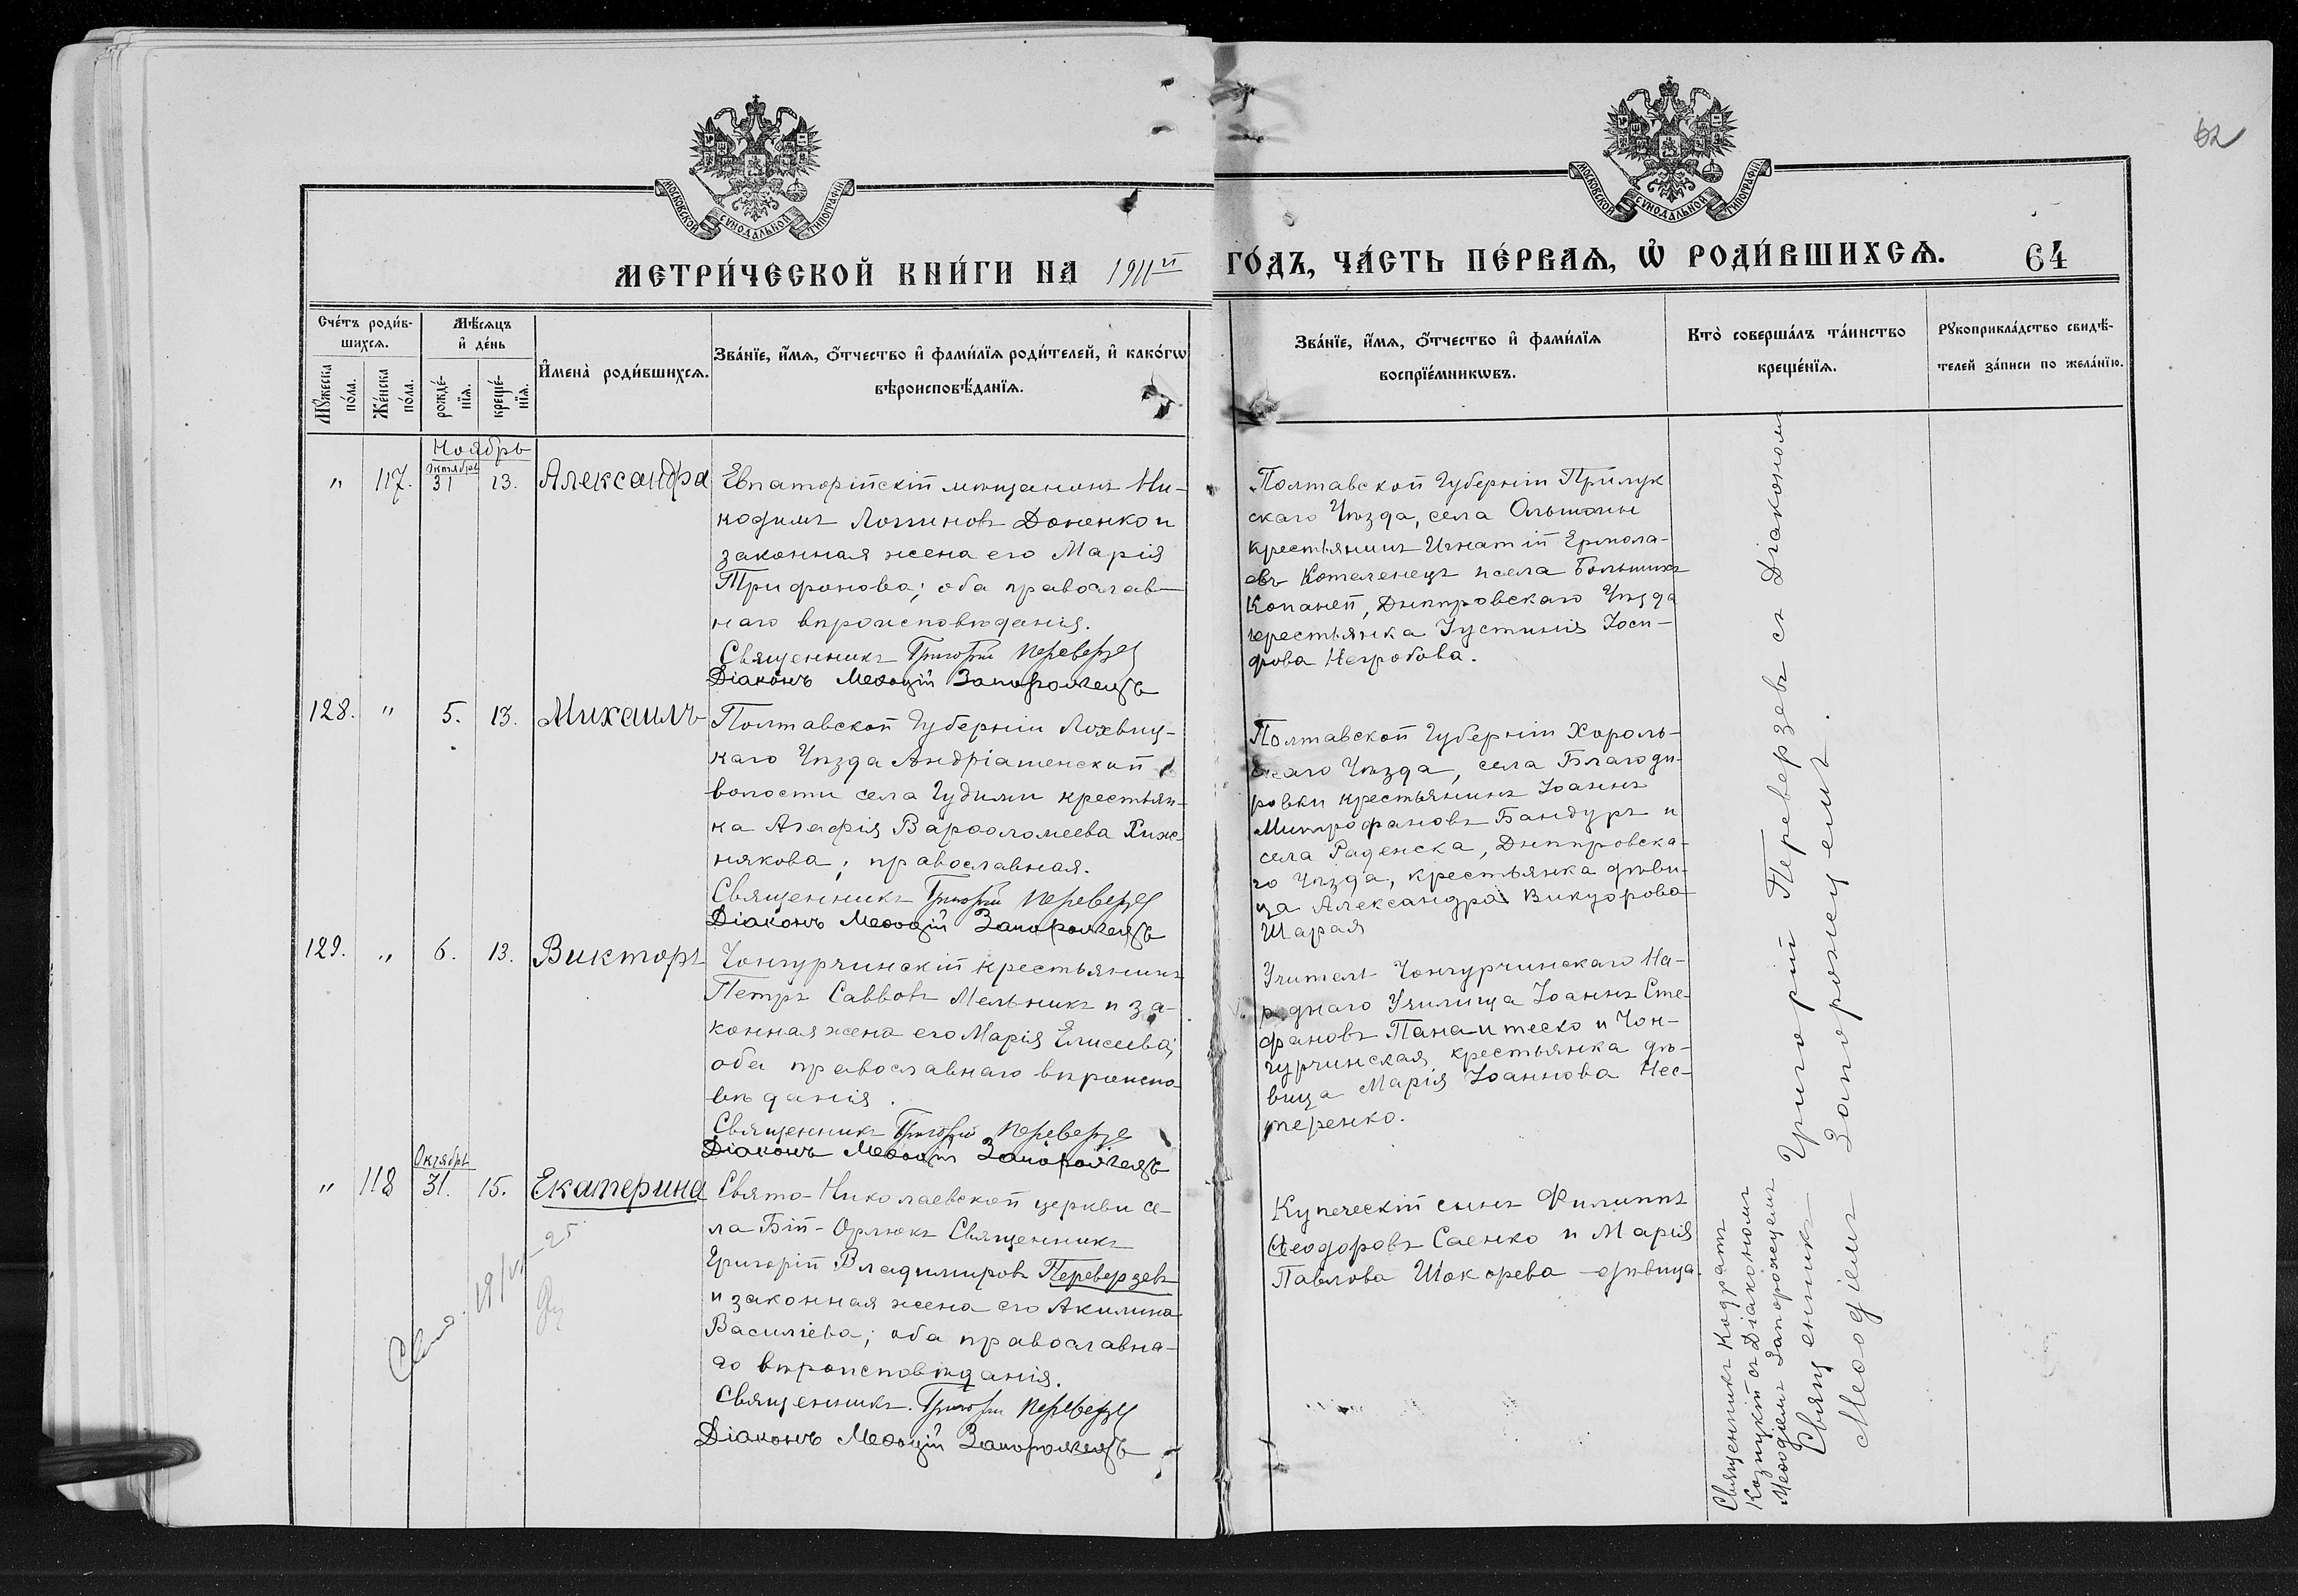 62
МОСКОВСКОЙ СУНОДАЛЬНОЙ ТИПОГРАФІИ
МОСКОВСКОЙ СУНОДАЛЬНОЙ ТИПОГРАФІИ
МЕТРИ́ЧЕСКОЙ КНИ́ГИ НА 1911й ГО́ДЪ, ЧА́СТЬ ПЕ́РВАѦ, Ѡ҆ РОДИ́ВШИХСѦ. 64
Сче́тъ роди́в-
шихсѧ.
Мꙋ́жеска
по́ла.
Же́нска
по́ла.
Мѣ́сѧцъ
и҆ де́нь
рожде́-
нїѧ.
креще́-
нїѧ.
И҆мена̀ роди́вшихсѧ.
Зва́нїе, и҆́мѧ, ѻ҆́тчество и҆ фами́лїѧ роди́телей, и҆ како́гѡ
вѣроисповѣ́данїѧ.
Зва́нїе, и҆́мѧ, ѻ҆́тчество и҆ фами́лїѧ
воспрїе́мникѡвъ.
Кто̀ соверша́лъ та́инство
креще́нїѧ.
Рꙋкоприкла́дство свидѣ́-
телей за́писи по жела́нїю.
Ноябрь
Октября
" 117. 31 13. Александра
Евпаторійскій мѣщанинъ Ни-
кодимъ Логиновъ Доненко и
законная жена его Марія
Трифонова; оба православ-
наго вѣроисповѣданія.
Священникъ Григорій Переверзев
Діаконъ Меѳодій Запорожецъ
Полтавской Губерніи Прилук
скаго Уѣзда, села Ольшаны
крестьянинъ Игнатій Ермола-
евъ Котеленецъ и села Большихъ
Копаней, Днѣпровскаго Уѣзда
крестьянка Іустинія Іоси-
фова Негробова.
128. " 5. 13. Михаилъ
Полтавской Губерніи Лохвиц-
каго Уѣзда Андріашевской
волости села Гудими крестьян-
ка Агафія Варѳоломеева Хиж-
някова; православная.
Священникъ Григорій Переверзев
Діаконъ Меѳодій Запорожецъ
Полтавской Губерніи Хороль-
скаго Уѣзда, села Благоди-
ровки крестьянинъ Іоаннъ
Митрофановъ Бандуръ и
села Раденска, Днѣпровска-
го Уѣзда, крестьянка дѣви-
ца Александра Викторова
Шарая
129. " 6. 13. Викторъ
Чонгурчинскій крестьянинъ
Петръ Саввовъ Мельникъ и за-
конная жена его Марія Елисеева;
оба православнаго вѣроиспо-
вѣданія.
Священникъ Григорій Переверзе
Діаконъ Меѳодій Запорожецъ
Учитель Чонгурчинскаго На-
роднаго Училища Іоаннъ Сте-
фановъ Панаитеско и Чон-
гурчинская крестьянка дѣ-
вица Марія Іоаннова Нес-
теренко.
Октябрь
" 118 31. 15. Екатерина
Свято-Николаевской церкви се-
ла Бій-Орлюкъ Священникъ
Григорій Владимировъ Переверзевъ
и законная жена его Акилина
Василіева; оба православна-
го вѣроисповѣданія.
Священникъ Григорій Переверзев
Діаконъ Меѳодій Запорожецъ
Купеческій сынъ Филиппъ
Ѳеодоровъ Саенко и Марія
Павлова Шокорева - дѣвица.
Священникъ Григорій Переверзевъ съ Діакономъ
Меѳодіемъ Запорожецемъ.
Священникъ Кодратъ
Козицкій съ Діакономъ
Меѳодіемъ Запорожцемъ